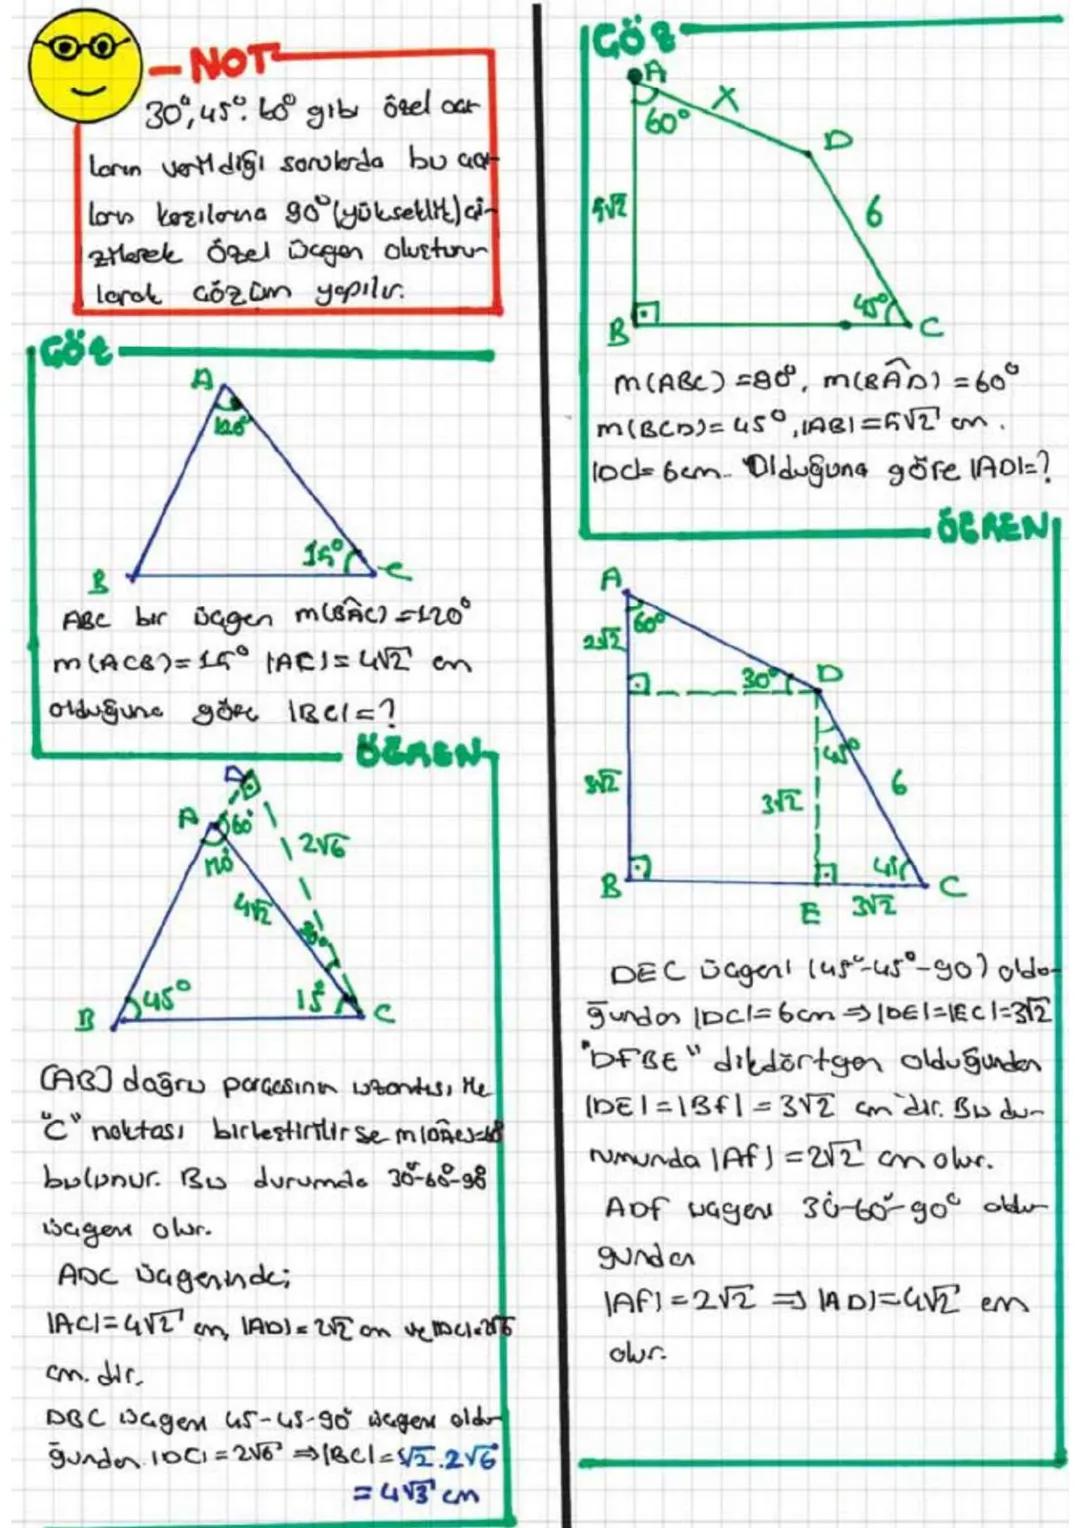 NOT
30°, 45°. 60° gibi özel açı
ların verildiği sorularda bu açı
ların karşılarına 90° (yükseklik) çi-
zilerek özel üçgen oluşturu-
larak çözüm yapılır.
ÇÖZ
A
120°
15°
B
C
ABC bir üçgen m(BÂC) = 120°
m(ACB) = 15° |AC| = 4√2 cm
olduğuna göre |BC| = ?
ÖĞREN
D
A
60°
120°
2√6
4√2
30°
45°
15°
B
C
[AB] doğru parçasının uzantısı ile
"C" noktası birleştirilirse m(DÂC)=60
bulunur. Bu durumda 30°-60°-90
üçgeni olur.
ADC üçgeninde;
|AC| = 4√2 cm, |AD| = 2√2 cm ve |DC|=2√6
cm. dir.
DBC üçgeni 45-45-90° üçgeni oldu-
ğundan |DC| = 2√6 ⇒ |BC| = √2.2√6
= 4√3 cm
ÇÖZ
A
X
60°
D
5√2
6
45°
B
C
m(ABC) = 90°, m(BÂD) = 60°
m(BCD) = 45°, |AB| = 5√2 cm.
|DC| = 6cm.. Olduğuna göre |AD| = ?
ÖĞREN
A
60°
2√2
30°
D
45°
3√2
3√2
6
45
B
C
E
3√2
DEC üçgeni (45°-45°-90) oldu-
ğundan |DC| = 6cm ⇒ |DE| = |EC| = 3√2
"DFBE" dikdörtgen olduğundan
|DE| = |Bf| = 3√2 cm'dir. Bu du-
rumunda |Af| = 2√2 cm olur.
ADf üçgeni 30-60°-90° oldu-
ğundan
|Af| = 2√2 ⇒ |AD| = 4√2 cm
olur.